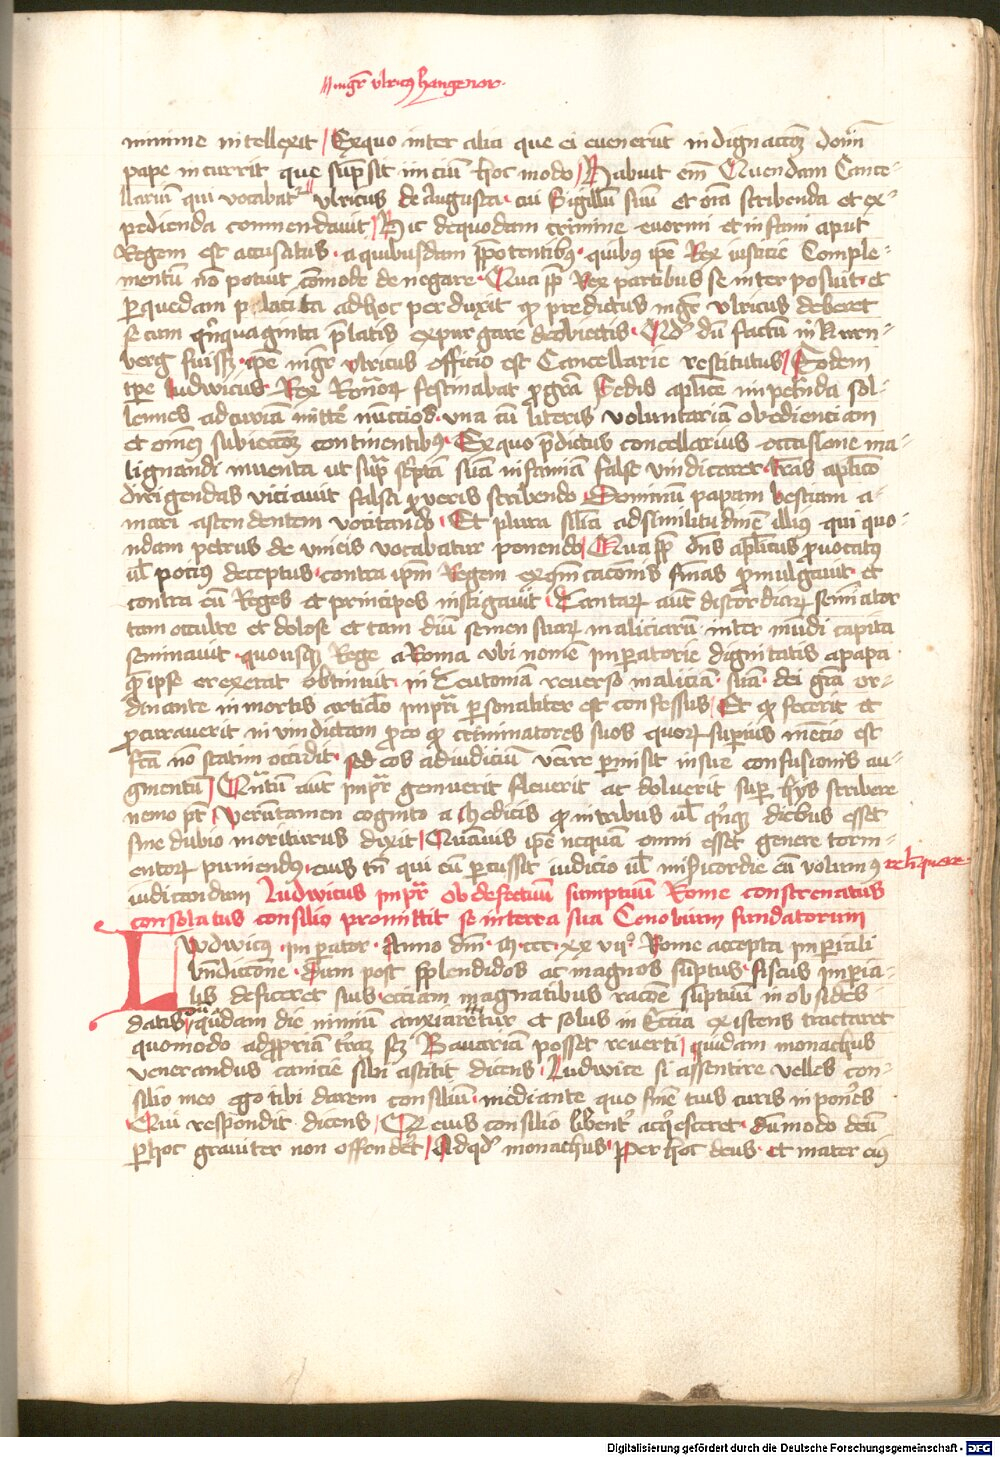 mgr̄ vlricꝯ hangenor
minime intellexit / Ex quo inter alia que ei eueneru̅t indignac̅oe̅ domi̅
pape incurrit que su̅psit iniciu̅ hoc modo / Habuit em̅ Quendam Cance-
llariu̅ qui vocabatᷣ vlricus de augusta · cui Sigillu̅ suu̅ et om̅ia scribenda et ex-
pedienda commendauit / Hic de quodam crimine enormi et infami aput
Regem est accusatus · a quibusdam p̅potentibꝯ · quibus ip̅e Rex iusticie Comple-
mentu̅ no̅ potuit co̅mode denegare · Qua p̅p̅ Rex partibus se interposuit · et
ꝑ quedam placita ad hoc perduxit ꝙ predictus mgr̄ vlricus deberet
se cum qui̅quaginta p̅latis expurgare de obiectis · Qd̅ du̅ factu̅ in Nurn-
berg fuiss; ip̅e mgr̄ vlricus officio est Cancellarie restitutus / Eodem
tp̅e Ludwicus Rex Romanoꝝ festinabat ꝓ gr̅a Sedis ap̅lice impetranda sol-
lennes ad curia̅ mitte̅ nuccios · vna cu̅ literis voluntaria̅ obedienciam
et om̅e̅ subiecc̅oe̅ continentibꝯ · Ex quo p̅dictus concellarius occasione ma-
lignandi inuenta ut sup̅ sc̅pta̅ sua̅ infamia̅ false vindicaret · l̅ras ap̅lico
dirigendas viciauit falsa ꝓ veris scribendo · Dominu̅ papam bestiam a
mari ascendentem vocitando · Et plura sil̅ia ad similitudine̅ illius qui quo-
ndam petrus de vineis vocabatur ponendo / Qua p̅p̅ dn̅s ap̅licus ꝓuocatꝯ
ul̅ pocius deceptus · contra ip̅m Regem excom̅cacionis sn̅ias ꝓmulgauit · et
contra eu̅ Reges et principes instigauit · Tantaꝝ aut̅ discordiaꝝ seminator
tam occulte et dolose et tam diu̅ semen suaꝝ maliciaru̅ · inter mu̅di capita
seminauit · quousqꝫ Rege a Roma vbi nome̅ imp̅atorie dignitatis a papa
ꝙ ipse erexerat obtinuit · in Teutonia̅ reuerso malicia̅ sua̅ · dei gr̅a or-
dinante in mortis articulo imp̅ri ꝑsonaliter est confessus / Et ꝙ fecerit et
ꝓcurauerit in vindictam ꝓ eo ꝙ criminatores suos quoꝝ superius mencio est
fc̅a no̅ statim occidit · sed eos ad iudiciu̅ venire ꝑmisit in sue confusionis au-
gmentu̅ / Qn̅tu̅ aut̅ imp̅r gemuerit fleuerit ac doluerit sup̅ hys scribere
nemo p̅t / Veru̅tamen cognito a medicis ꝙ in tribus ul̅ qui̅qꝫ diebus esset
sine dubio moriturus dixit / Qua̅uis ip̅e nequam omni esset genere torm-
entoꝝ puniendꝯ · eius tn̅ qui eu̅ ꝑcussit iudicio ul̅ mi̅s̅cordie eu̅ volumꝯ relinquere
iudicandum Ludwicus imp̅r ob defectum sumptuum Rome constrenatus
consolatus consilio promittit se in terra sua Cenobium fundatorum
Ludwicꝯ · imperator · Anno dn̅i · M · ccc · xx vii° Rome accepta imp̅iali
bn̅diccione · Dum post sple̅ndidos ac magnos su̅ptus fiscus imp̅ia-
lis deficeret suis eciam magnatibus rac̅oe su̅ptuu̅ in obsides
datis / quadam die nimiu̅ anxiaretur et solus in Ecc̅ia existens tractaret
quomodo ad p̅pria̅ terra̅ s; Bauariam posset reuerti / quidam monachus
venerandus canicie sibi astitit dicens · Ludwice si assentire velles con-
silio meo ego tibi darem consiliu̅ · mediante quo fine̅ tuis curis inpon̅es
Qui respondit dicens / Qd̅ eius consilio libent̅ acq̅esceret · du̅modo deu̅
ꝑ hoc grauiter non offend̅et / Ad qd̅ monachus · Per hoc deus · et mater eiꝯ
Digitalisierung gefördert durch die Deutsche Forschungsgemeinschaft - DFG